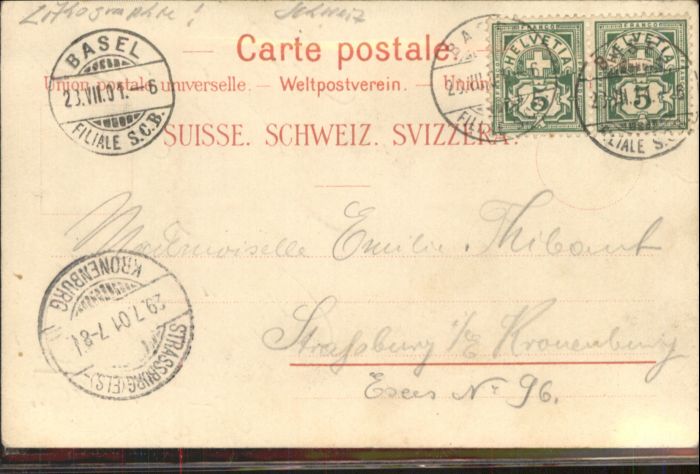 Lithographie! Schweiz
Carte postale.
Union postale universelle. – Weltpostverein. – Union
SUISSE. SCHWEIZ. SVIZZERA.
BASEL
23.VII.01.-6
FILIALE S.C.B.
FRANCO
HELVETIA
5
FRANCO
HELVETIA
5
Mademoiselle Emilie Thibaut
Straßburg i/E Kronenburg
No 96.
KRONENBURG
29.7.01.7-8
STRASSBURG (ELS)